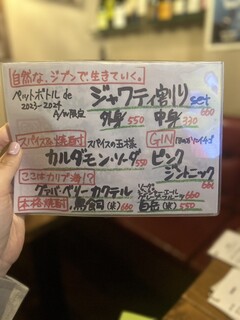 自然な、ジブンで生きていく。
ペットボトル de ジャワティ割り set
2023-2024
A/W限定 外身 550 中身 330
スパイスな焼酎 スパイスの王様 GIN
カルダモン・ソーダ 550 ピンク
ジントニック
ここはカリブ海!?
グァバ・ベリーカクテル
本格焼酎 (米) 660 白岳(米) 550